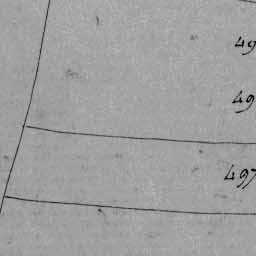 49
49
497